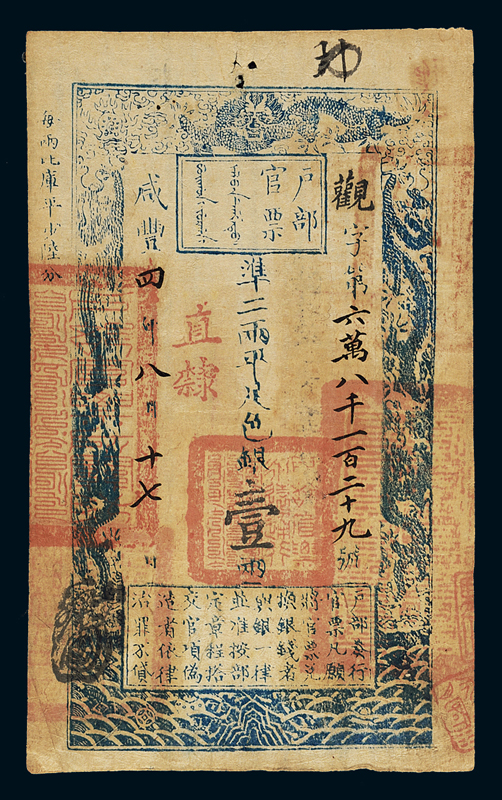 戶部
官票
觀字第六萬八千一百二十九號
準二兩平足色銀壹兩
直隸
咸豐四年八月十七日
每兩比庫平少陸分
戶部奏行
官票凡願
將官票兌
換銀錢者
與銀一律
並准按部
定章程搭
交官項偽
造者依律
治罪不貸